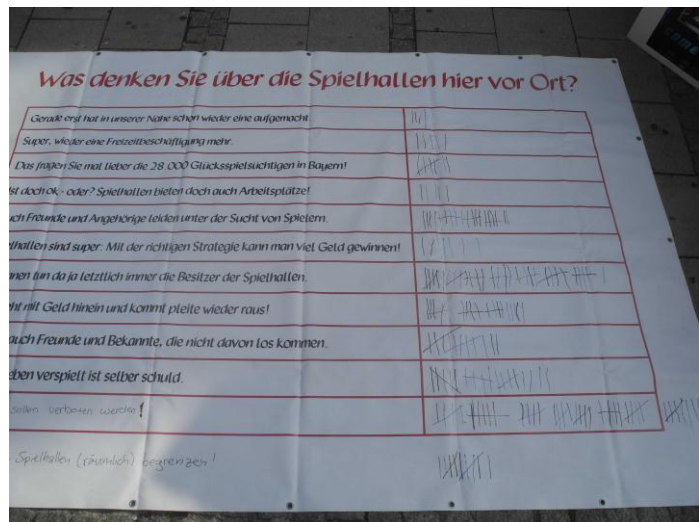 Was denken Sie über die Spielhallen hier vor Ort?
Gerade erst hat in unserer Nähe schon wieder eine aufgemacht.
Super, wieder eine Freizeitbeschäftigung mehr.
Das fragen Sie mal lieber die 28.000 Glücksspielsüchtigen in Bayern!
Ist doch ok - oder? Spielhallen bieten doch auch Arbeitsplätze!
uch Freunde und Angehörige leiden unter der Sucht von Spielern.
elhallen sind super: Mit der richtigen Strategie kann man viel Geld gewinnen!
nnen tun da ja letztlich immer die Besitzer der Spielhallen.
eht mit Geld hinein und kommt pleite wieder raus!
auch Freunde und Bekannte, die nicht davon los kommen.
eben verspielt ist selber schuld.
sollen verboten werden!
Spielhallen (räumlich) begrenzen!